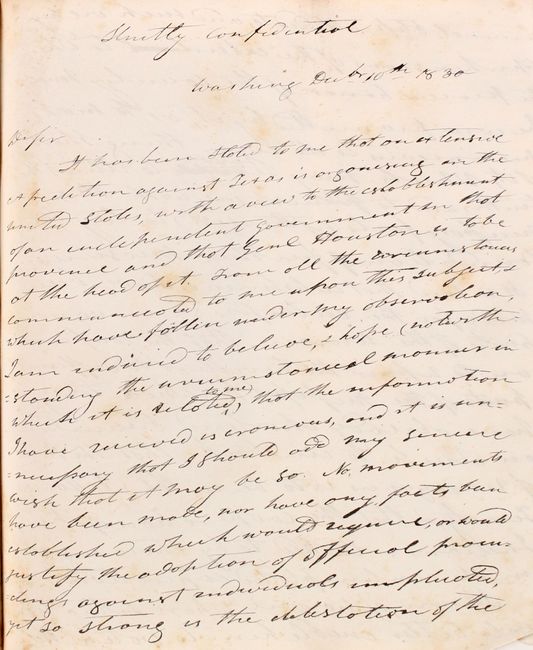 Strictly confidential
Washing Decbr 10th 1830
Dr sir
It has been stated to me that an extensive
expedition against Texas is organising in the
united States, with a view to the establishment
of an independent government in that
province and that Genl Houston is to be
at the head of it. From all the circumstances
communicated to me upon this subject &
which have fallen under my observation,
I am induced to believe, & hope (notwith-
=standing the circumstancial manner in
which it is related to me) that the information
I have received is eroneous, and it is un-
=necessary that I should add my sincere
wish that it may be so. No movements
have been made, nor have any facts been
established which would require, or would
justify the adoption of official procee-
-dings against individuals implicated,
yet so strong is the detestation of the